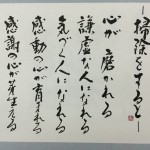 －掃除をすると－
心が磨かれる
謙虚な人になれる
気づく人になれる
感動の心が育まれる
感謝の心が芽生える